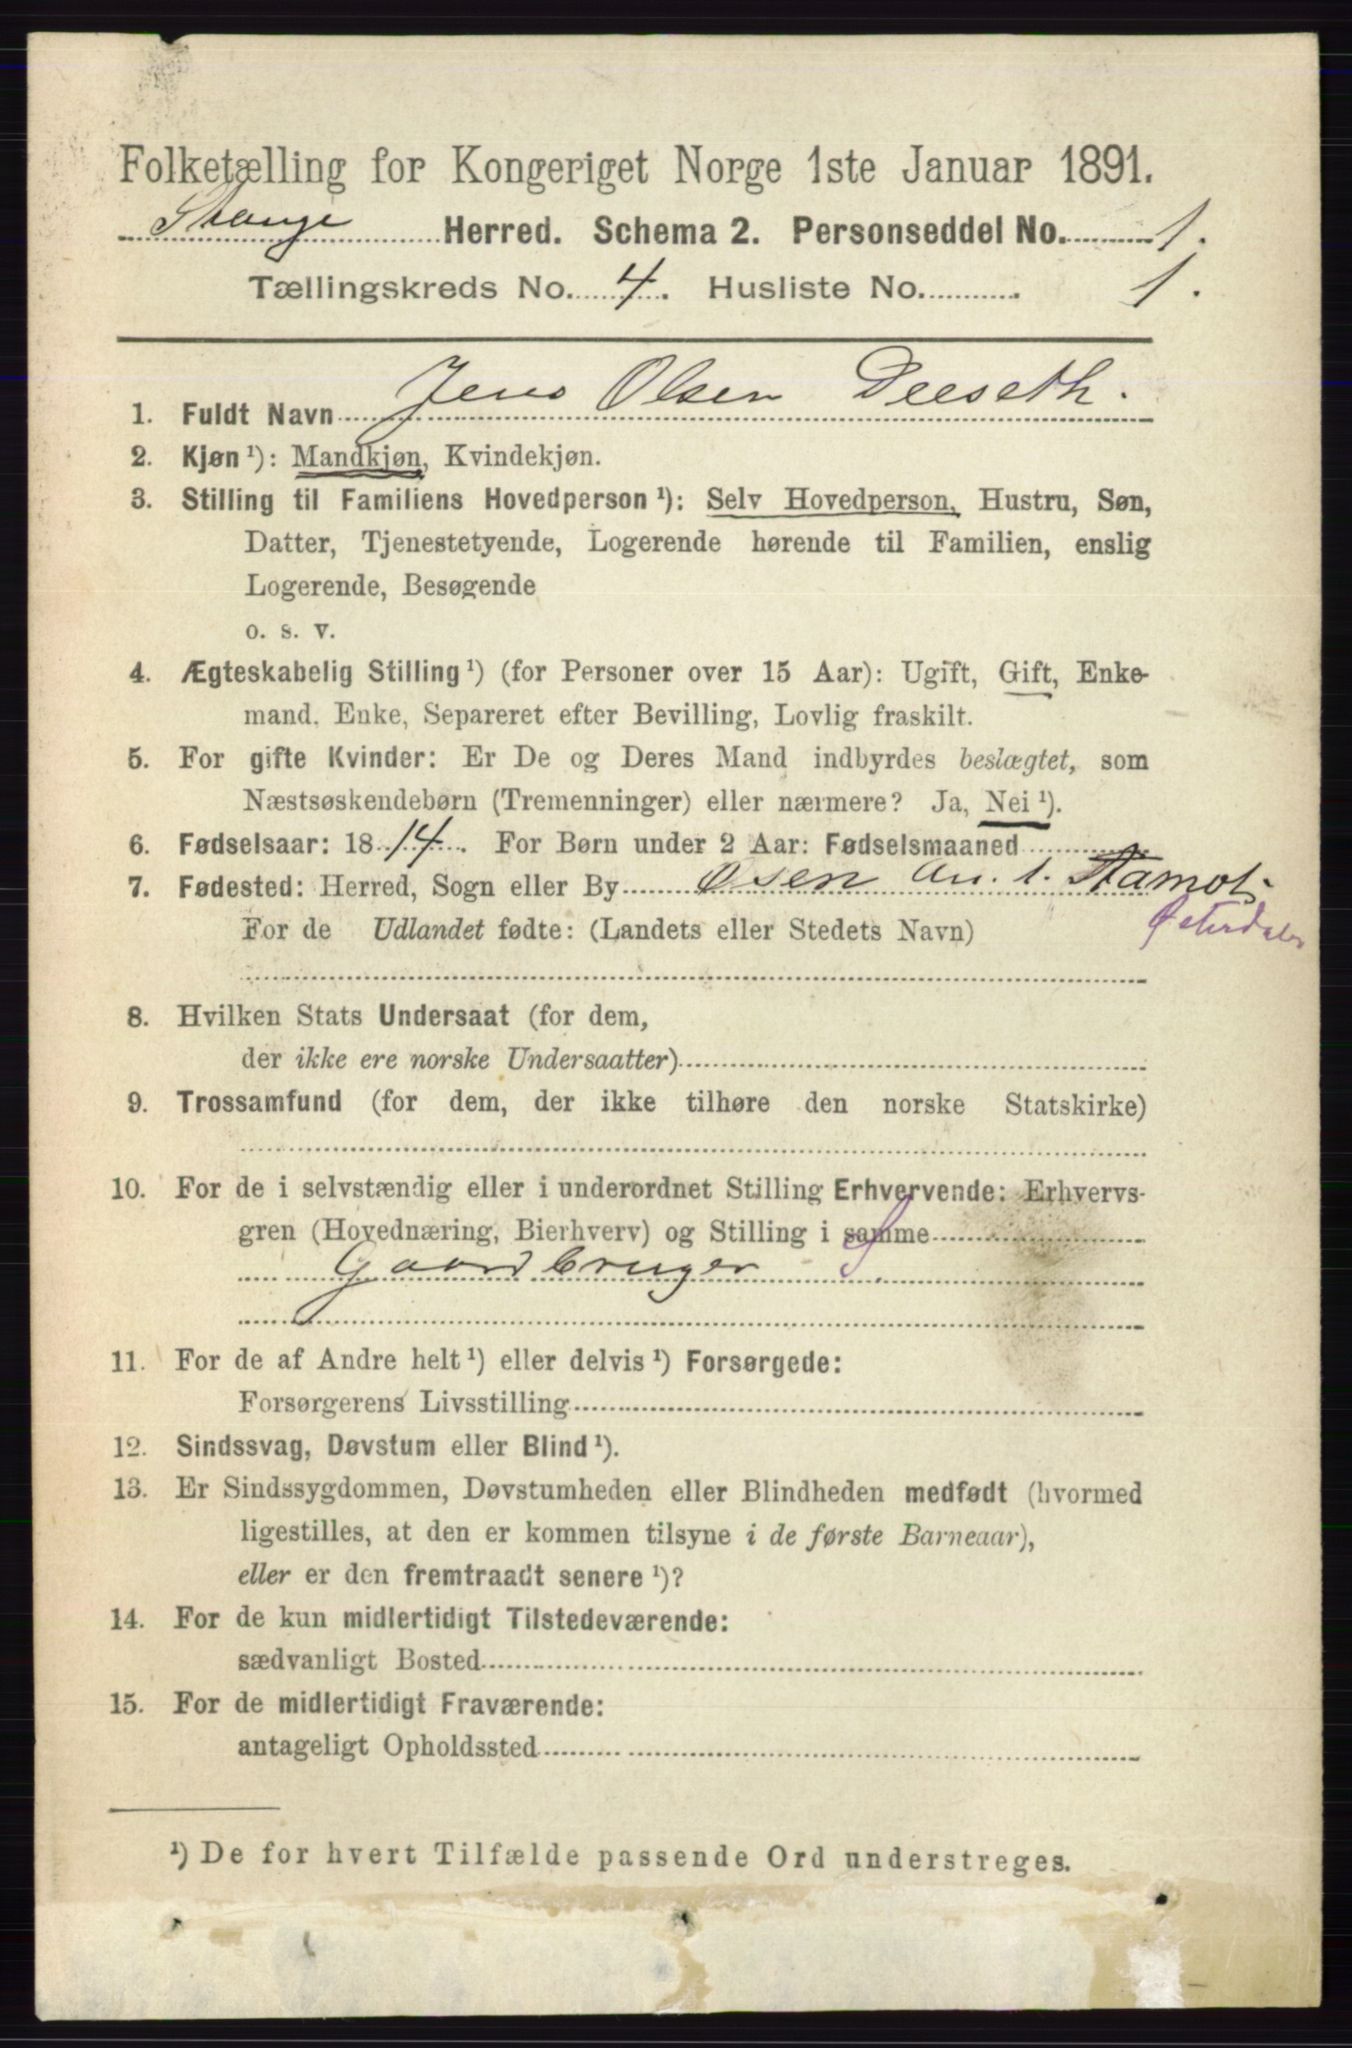 Folketælling for Kongeriget Norge 1ste Januar 1891.
Stange Herred. Schema 2. Personseddel No. 1.
Tællingskreds No. 4. Husliste No. 1.
1. Fuldt Navn Jens Olsen Deeseth.
2. Kjøn ¹): Mandkjøn, Kvindekjøn.
3. Stilling til Familiens Hovedperson ¹): Selv Hovedperson, Hustru, Søn,
Datter, Tjenestetyende, Logerende hørende til Familien, enslig
Logerende, Besøgende
o. s. v.
4. Ægteskabelig Stilling ¹) (for Personer over 15 Aar): Ugift, Gift, Enke-
mand, Enke, Separeret efter Bevilling, Lovlig fraskilt.
5. For gifte Kvinder: Er De og Deres Mand indbyrdes beslægtet, som
Næstsøskendebørn (Tremenninger) eller nærmere? Ja, Nei ¹).
6. Fødselsaar: 1814. For Børn under 2 Aar: Fødselsmaaned
7. Fødested: Herred, Sogn eller By Osen An. t. Aamot
Østerdalen
For de Udlandet fødte: (Landets eller Stedets Navn)
8. Hvilken Stats Undersaat (for dem,
der ikke ere norske Undersaatter)
9. Trossamfund (for dem, der ikke tilhøre den norske Statskirke)
10. For de i selvstændig eller i underordnet Stilling Erhvervende: Erhvervs-
gren (Hovednæring, Bierhverv) og Stilling i samme
Gaardbruger S.
11. For de af Andre helt ¹) eller delvis ¹) Forsørgede:
Forsørgerens Livsstilling
12. Sindssvag, Døvstum eller Blind ¹).
13. Er Sindssygdommen, Døvstumheden eller Blindheden medfødt (hvormed
ligestilles, at den er kommen tilsyne i de første Barneaar),
eller er den fremtraadt senere ¹)?
14. For de kun midlertidigt Tilstedeværende:
sædvanligt Bosted
15. For de midlertidigt Fraværende:
antageligt Opholdssted
¹) De for hvert Tilfælde passende Ord understreges.